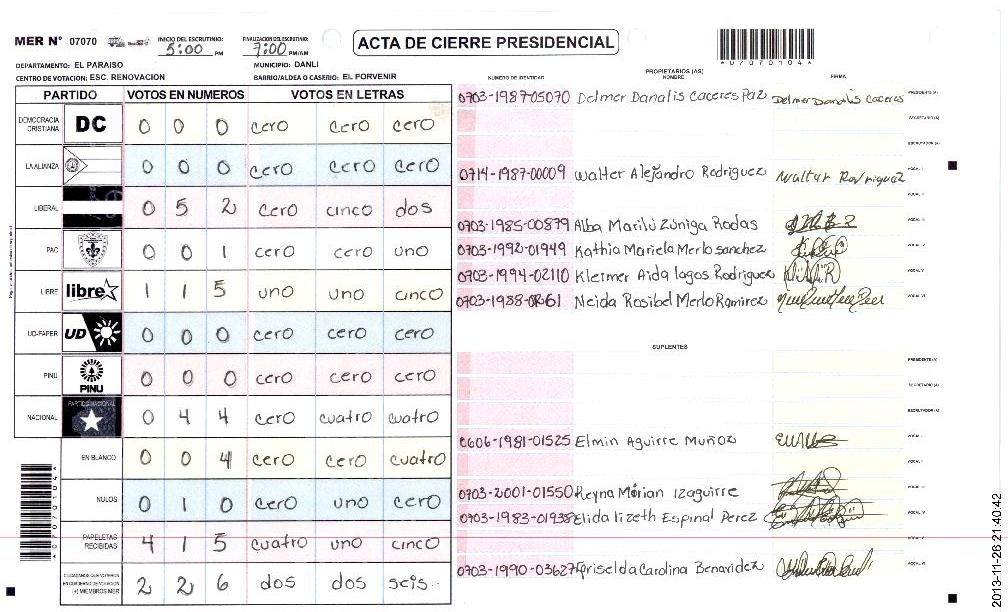 MER N° 07070 INICIO DEL ESCRUTINIO: 5:00 PM FINALIZACION DEL ESCRUTINIO: 7:00 PM/AM ACTA DE CIERRE PRESIDENCIAL
*07070104*
DEPARTAMENTO: EL PARAISO MUNICIPIO: DANLI
CENTRO DE VOTACION: ESC. RENOVACION BARRIO/ALDEA O CASERIO: EL PORVENIR
PARTIDO VOTOS EN NUMEROS VOTOS EN LETRAS
DEMOCRACIA CRISTIANA DC 0 0 0 cero cero cero
LA ALIANZA 0 0 0 cero cero cero
LIBERAL 0 5 2 cero cinco dos
PAC 0 0 1 cero cero uno
LIBRE libre 1 1 5 uno uno cinco
UD-FAPER UD 0 0 0 cero cero cero
PINU PINU 0 0 0 cero cero cero
NACIONAL PARTIDO NACIONAL 0 4 4 cero cuatro cuatro
EN BLANCO 0 0 4 cero cero cuatro
NULOS 0 1 0 cero uno cero
PAPELETAS RECIBIDAS 4 1 5 cuatro uno cinco
CIUDADANOS QUE VOTARON EN CUADERNO DE VOTACION (+) MIEMBROS MER 2 2 6 dos dos seis
*07070104*
PROPIETARIOS (AS)
NUMERO DE IDENTIDAD NOMBRE FIRMA
0703-1987-05070 Delmer Danalis Caceres Paz Delmer Danalis Caceres PRESIDENTE (A)
SECRETARIO (A)
ESCRUTADOR (A)
0714-1987-00009 Walter Alejandro Rodriguez Walter Rodriguez VOCAL I
VOCAL II
0703-1985-00879 Alba Marilú Zúniga Rodas VOCAL III
0703-1992-01949 Kathia Mariela Merlo sanchez VOCAL IV
0703-1994-02110 Klermer Aida lagos Rodriguez VOCAL V
Neida Rosibel Merlo Ramirez VOCAL VI
SUPLENTES
PRESIDENTE (A)
SECRETARIO (A)
ESCRUTADOR (A)
0606-1981-01525 Elmin Aguirre Muñoz VOCAL I
VOCAL II
0703-2001-01550 Reyna Mirian Izaguirre VOCAL III
0703-1983-01938 Elida lizeth Espinal Perez VOCAL IV
VOCAL V
0703-1990-03627 Griselda Carolina Benavidez VOCAL VI
2013-11-26 21:40:42